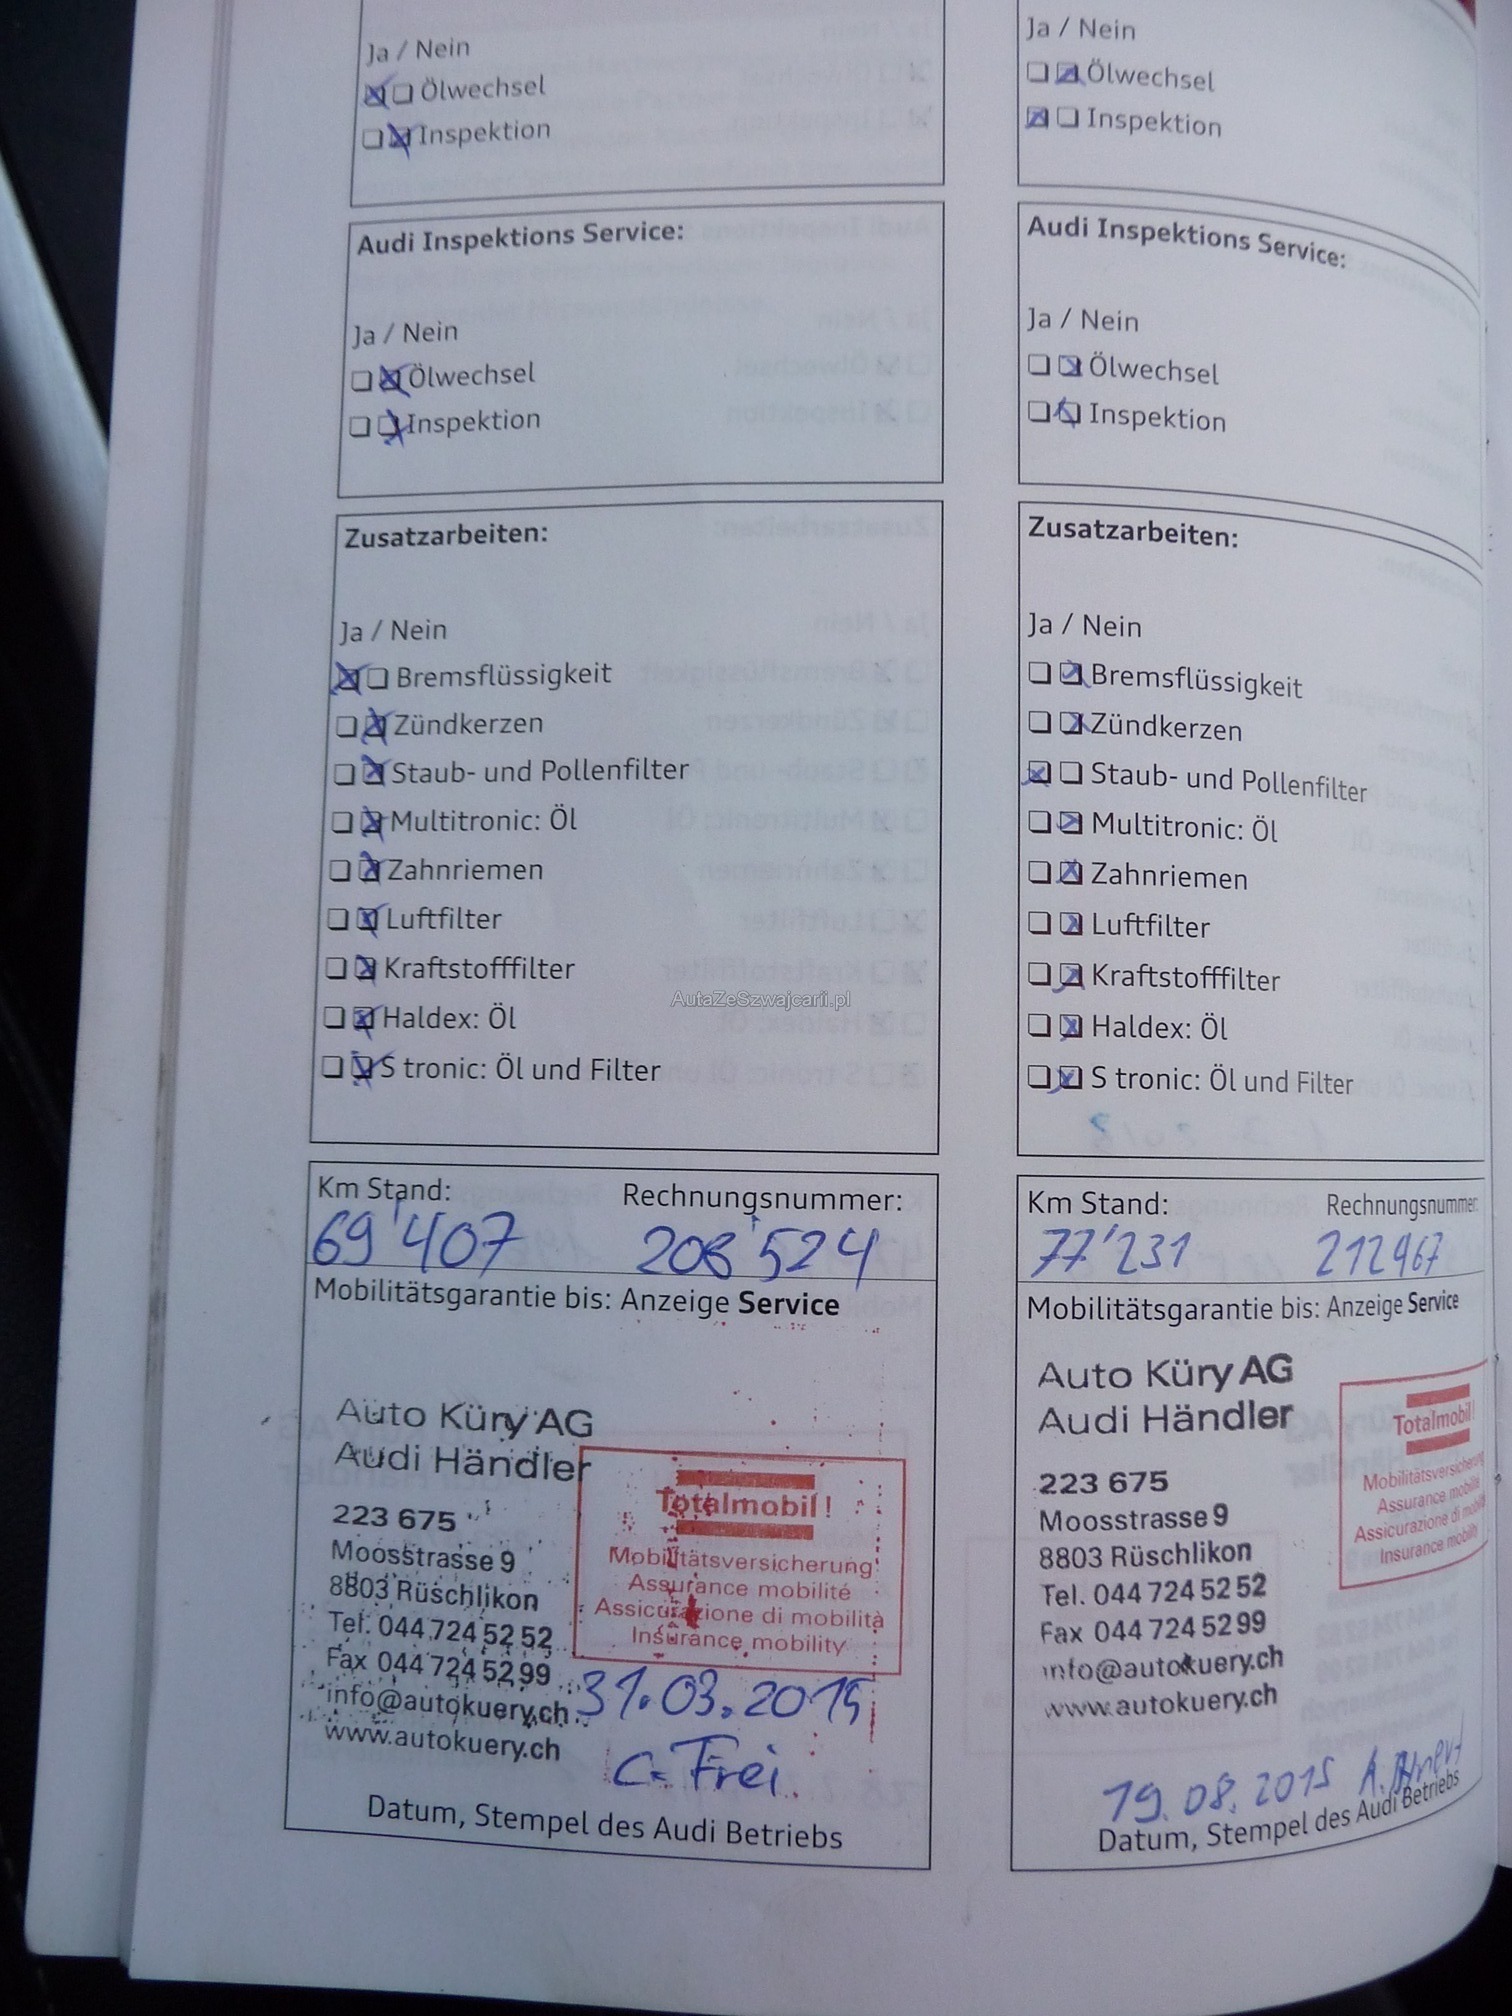 Ja / Nein
Ölwechsel
Inspektion
Audi Inspektions Service:
Ja / Nein
Ölwechsel
Inspektion
Zusatzarbeiten:
Ja / Nein
Bremsflüssigkeit
Zündkerzen
Staub- und Pollenfilter
Multitronic: Öl
Zahnriemen
Luftfilter
Kraftstofffilter
Haldex: Öl
S tronic: Öl und Filter
Km Stand: Rechnungsnummer:
69'407 208'524
Mobilitätsgarantie bis: Anzeige Service
Auto Küry AG
Audi Händler
223 675
Moosstrasse 9
8803 Rüschlikon
Tel. 044 724 52 52
Fax 044 724 52 99
info@autokuery.ch
www.autokuery.ch
Totalmobil!
Mobilitätsversicherung
Assurance mobilité
Assicurazione di mobilità
Insurance mobility
31.03.2015
C. Frei
Datum, Stempel des Audi Betriebs
Ja / Nein
Ölwechsel
Inspektion
Audi Inspektions Service:
Ja / Nein
Ölwechsel
Inspektion
Zusatzarbeiten:
Ja / Nein
Bremsflüssigkeit
Zündkerzen
Staub- und Pollenfilter
Multitronic: Öl
Zahnriemen
Luftfilter
Kraftstofffilter
Haldex: Öl
S tronic: Öl und Filter
Km Stand: Rechnungsnummer:
77'231 212467
Mobilitätsgarantie bis: Anzeige Service
Auto Küry AG
Audi Händler
223 675
Moosstrasse 9
8803 Rüschlikon
Tel. 044 724 52 52
Fax 044 724 52 99
info@autokuery.ch
www.autokuery.ch
Totalmobil!
Mobilitätsversicherung
Assurance mobilité
Assicurazione di mobilità
Insurance mobility
19.08.2015 A.
Datum, Stempel des Audi Betriebs
AutaZeSzwajcarii.pl